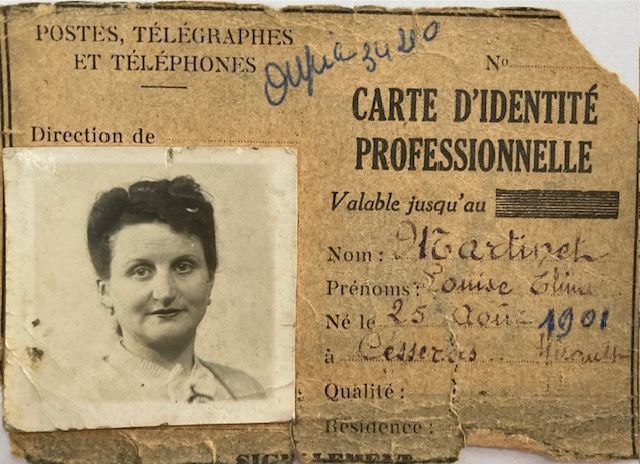 POSTES, TÉLÉGRAPHES
ET TÉLÉPHONES
34200
Nº
CARTE D'IDENTITÉ
PROFESSIONNELLE
Direction de
Valable jusqu'au
Nom : Martinet
Prénoms : Louise
Né le 25 Août 1901
à Cesseras
Qualité :
Résidence :
SIGNALEMENT